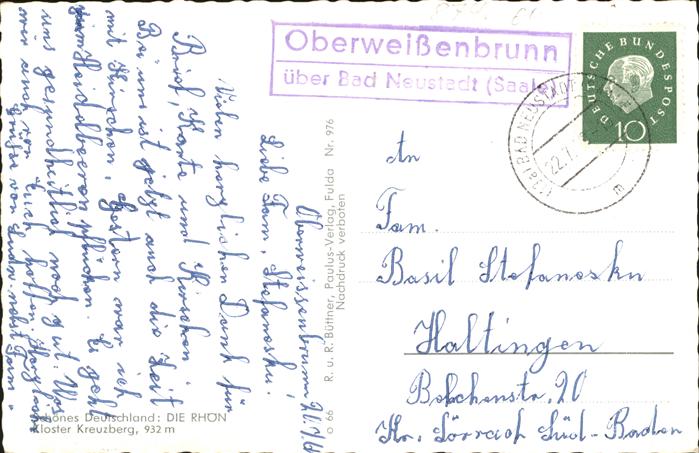 Oberweißenbrunn
über Bad Neustadt (Saale)
DEUTSCHE BUNDESPOST
10
BAD NEUSTADT
22.7.
m
An
Fam.
Basil Stefanosku
Haltingen
Belchenstr. 20
Kr. Lörrach Süd-Baden
Oberweissenbrunn, 21.7.6
Liebe Fam. Stefanosku!
Vielen herzlichen Dank für
Brief, Karte und Kirschen.
Bei uns ist jetzt auch die Zeit
mit Kirschen. Gestern war ich
zum Heidelbeeren pflücken. Es geht
uns gesundheitlich noch gut. Was
wir auch von Euch hoffen. Herzliche
Grüße von
Fam.
R. u. R. Büttner, Paulus-Verlag, Fulda Nr. 976
Nachdruck verboten
O 66
Schönes Deutschland: DIE RHÖN
Kloster Kreuzberg, 932 m